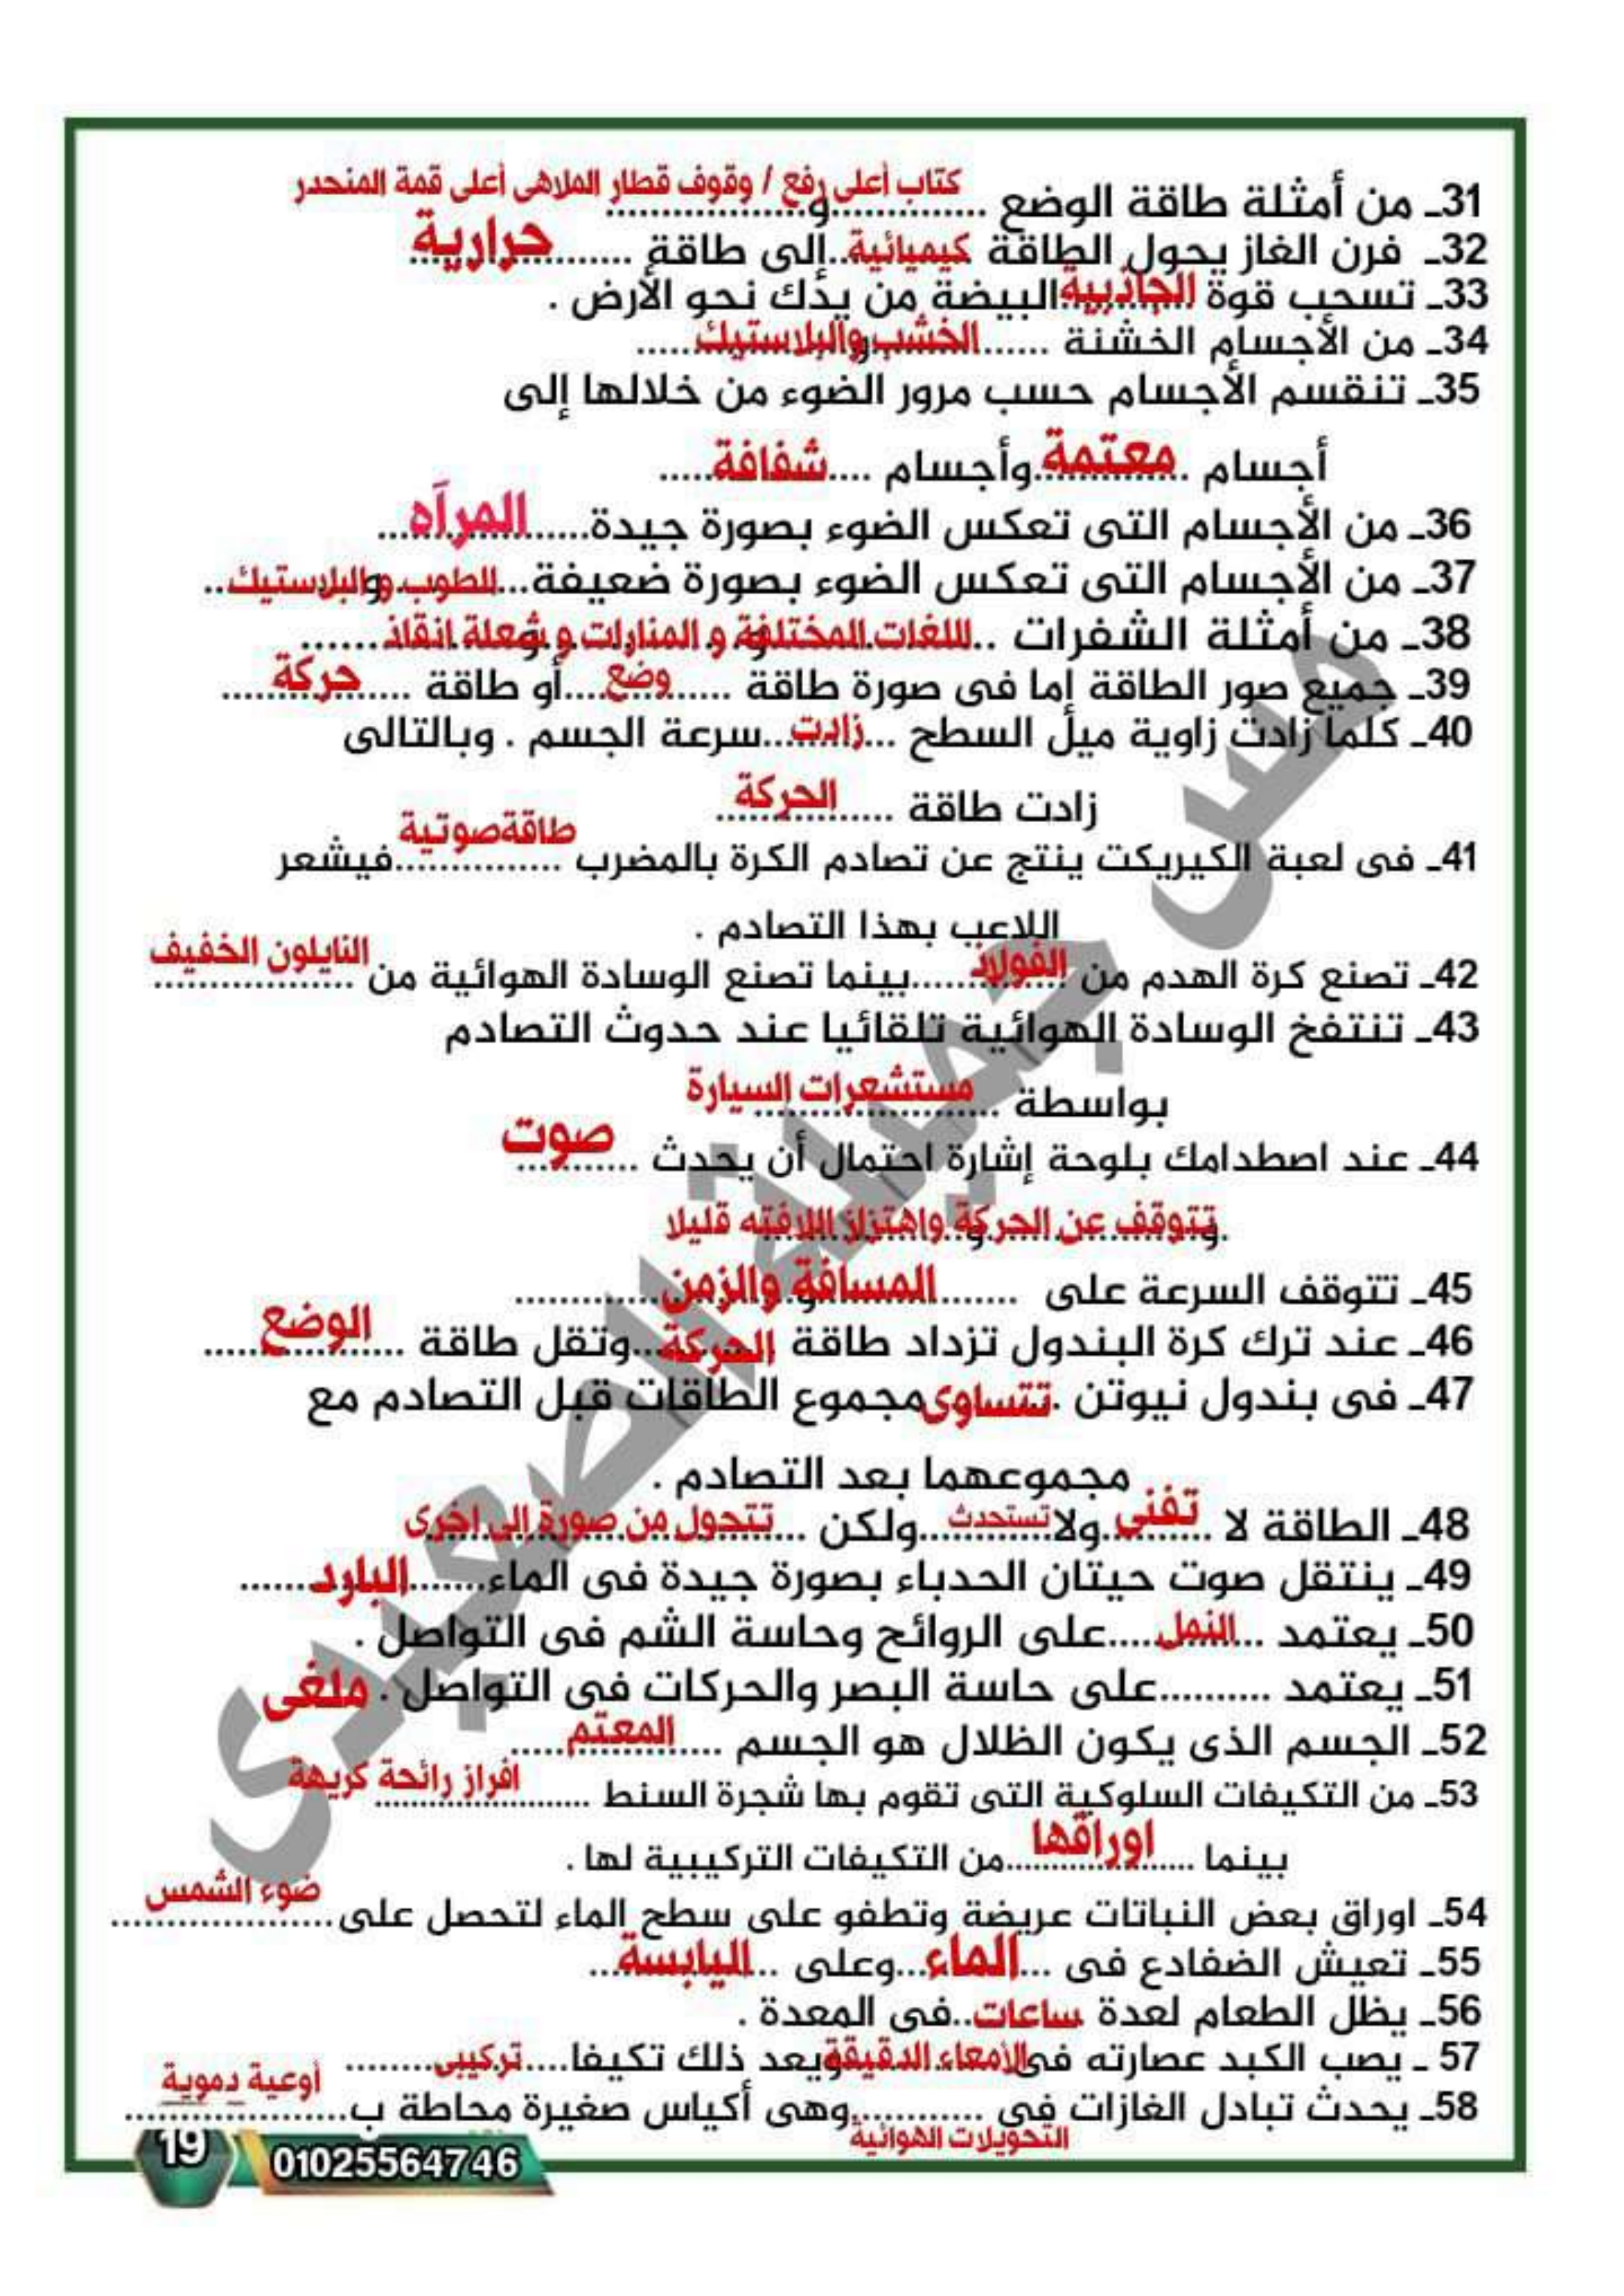 كتاب أعلى رفع / وقوف قطار الملاهى أعلى قمة المنحدر
31ـ من أمثلة طاقة الوضع ...............و...................
32ـ فرن الغاز يحول الطاقة كيميائية..إلى طاقة ......حرارية......
33ـ تسحب قوة الجاذبية البيضة من يدك نحو الأرض .
34ـ من الأجسام الخشنة ......الخشب والبلاستيك.....
35ـ تنقسم الأجسام حسب مرور الضوء من خلالها إلى
أجسام .معتمة..وأجسام ....شفافة.....
36ـ من الأجسام التى تعكس الضوء بصورة جيدة......المرآه...
37ـ من الأجسام التى تعكس الضوء بصورة ضعيفة...للطوب والبلاستيك..
38ـ من أمثلة الشفرات ..اللغات المختلفة و المنارات و شعلة انقاذ......
39ـ جميع صور الطاقة إما فى صورة طاقة ......وضع....أو طاقة ....حركة.....
40ـ كلما زادت زاوية ميل السطح ...زادت....سرعة الجسم . وبالتالى
زادت طاقة .....الحركة.....
طاقةصوتية
41ـ فى لعبة الكيريكت ينتج عن تصادم الكرة بالمضرب ...............فيشعر
اللاعب بهذا التصادم .
42ـ تصنع كرة الهدم من الفولاذ......بينما تصنع الوسادة الهوائية من النايلون الخفيف
43ـ تنتفخ الوسادة الهوائية تلقائيا عند حدوث التصادم
بواسطة ..مستشعرات السيارة
44ـ عند اصطدامك بلوحة إشارة احتمال أن يحدث ..صوت
.وتتوقف عن الحركة واهتزاز اللافته قليلا
45ـ تتوقف السرعة على .......المسافة والزمن.............
46ـ عند ترك كرة البندول تزداد طاقة الحركة..وتقل طاقة ..الوضع.....
47ـ فى بندول نيوتن .تتساوى مجموع الطاقات قبل التصادم مع
مجموعهما بعد التصادم .
48ـ الطاقة لا .تفنى.ولا تستحدث..ولكن ...تتحول من صورة إلى اخرى
49ـ ينتقل صوت حيتان الحدباء بصورة جيدة فى الماء.......البارد.......
50ـ يعتمد ..النمل....على الروائح وحاسة الشم فى التواصل .
51ـ يعتمد ..........على حاسة البصر والحركات فى التواصل . ملغى
52ـ الجسم الذى يكون الظلال هو الجسم ....المعتم.....
53ـ من التكيفات السلوكية التى تقوم بها شجرة السنط ......افراز رائحة كريهة
بينما ...اوراقها......من التكيفات التركيبية لها .
54ـ اوراق بعض النباتات عريضة وتطفو على سطح الماء لتحصل على..ضوء الشمس..
55ـ تعيش الضفادع فى ...الماء...وعلى ..اليابسة..
56ـ يظل الطعام لعدة ساعات..فى المعدة .
57 ـ يصب الكبد عصارته فى الأمعاء الدقيقة ويعد ذلك تكيفا....تركيبى.......
أوعية دموية
58ـ يحدث تبادل الغازات فى ............وهى أكياس صغيرة محاطة ب...................
التحويلات الهوائية
19
01025564746
مس جميلة الصعيدى